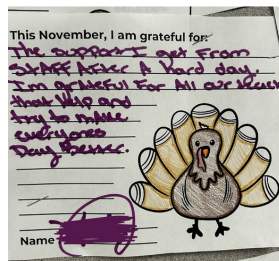 This November, I am grateful for:
The support I get From
STAFF AFter A Hard day.
I'm grateful For All our
that Help and
try to make
everyones
Day Better.
Name